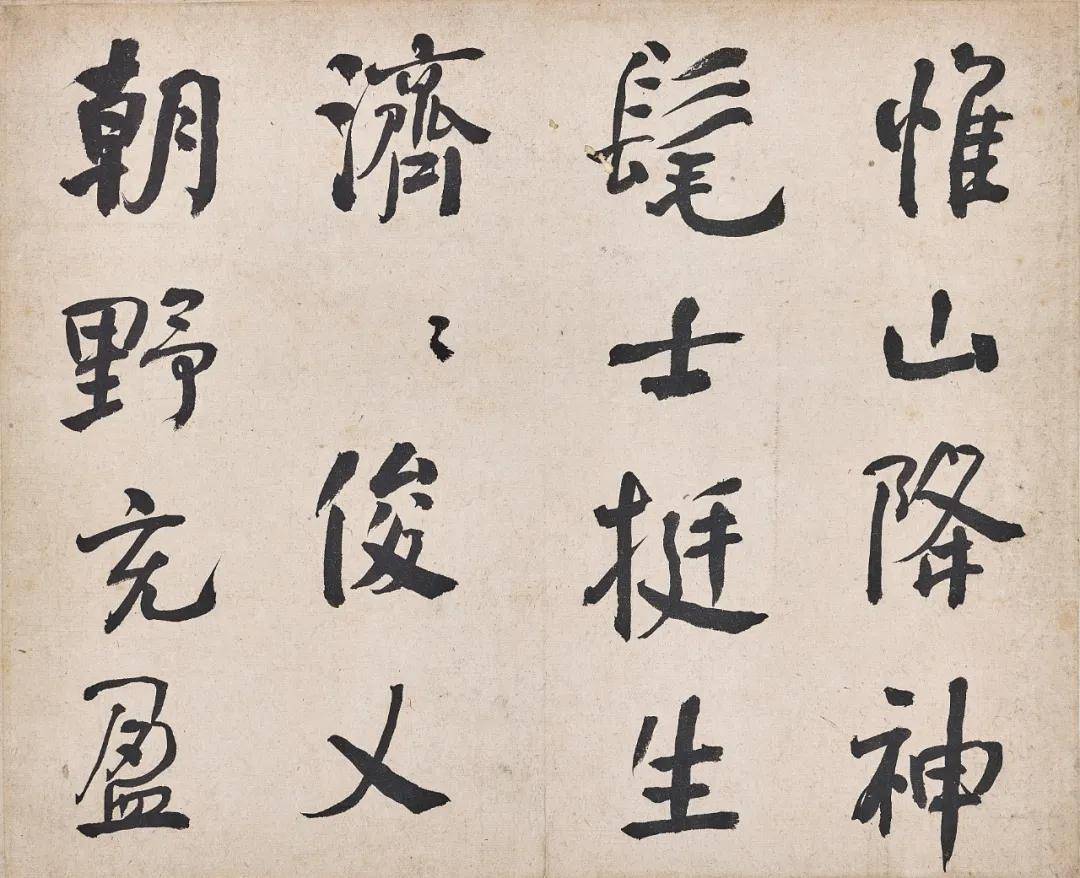 惟山降神
髦士挺生
濟〻俊乂
朝野充盈